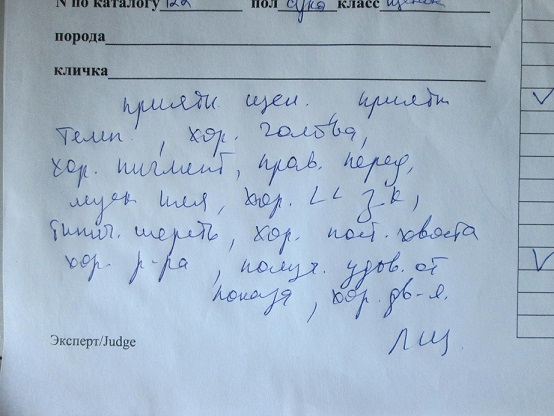 N по каталогу 122 пол сука класс щенки
порода
кличка
приятн. щен., приятн
темп., хор. голова,
хор. пигмент, прав. перед,
муск шея, хор. LL з-к,
типич. шерсть, хор. пост. хвоста
хор. р-ра, получ. удов. от
показа, хор. дв-я.
Эксперт/Judge
ЛЩ